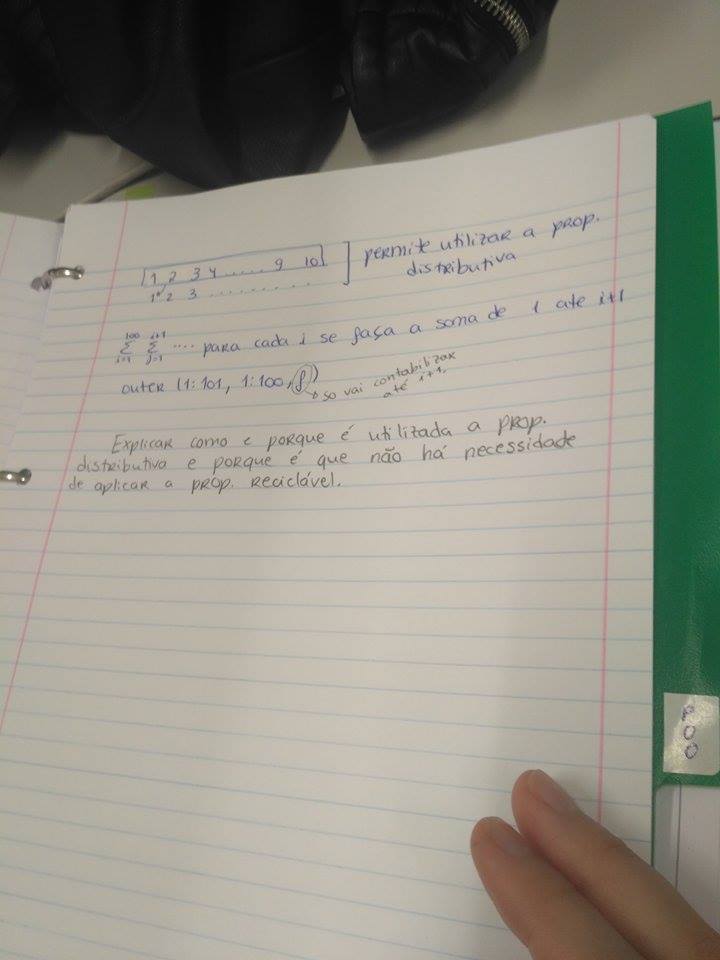 1, 2 3 4 ...... 9 10 ] permite utilizar a prop.
1 2 3 ......... distributiva
100 i+1
Σ Σ .... para cada i se faça a soma de 1 ate i+1
i=1 j=1
outer (1:101, 1:100, f)
so vai contabilizar
até i+1.
Explicar como e porque é utilizada a prop.
distributiva e porque é que não há necessidade
de aplicar a prop. reciclável.
POO